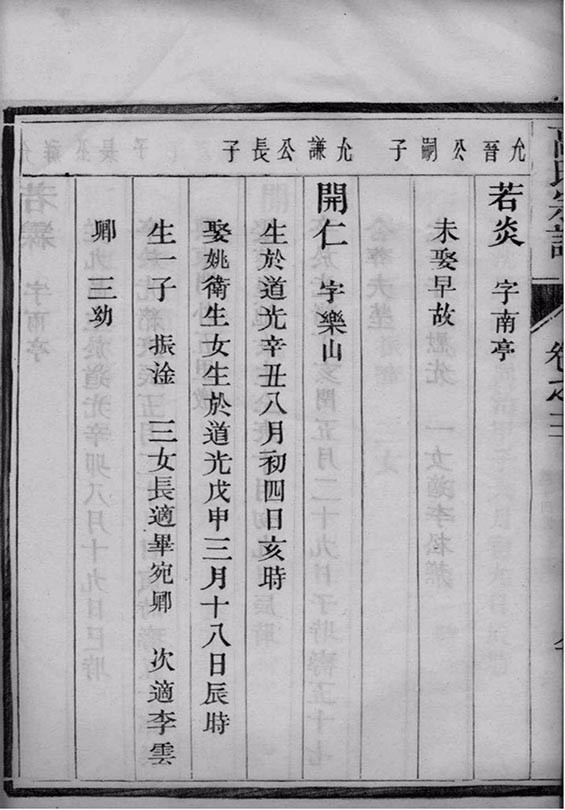 高氏宗譜
卷之三
允晉公嗣子
若炎 字南亭
未娶早故
允謙公長子
開仁 字樂山
生於道光辛丑八月初四日亥時
娶姚衛生女生於道光戊申三月十八日辰時
生一子 振淦 三女長適畢宛卿 次適李雲
卿 三幼